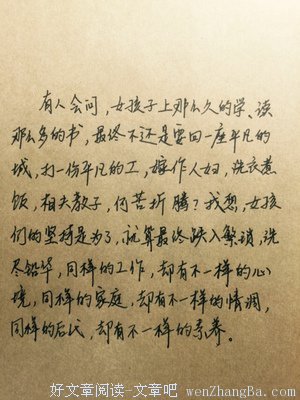 有人会问,女孩子上那么久的学、读
那么多的书,最终不还是要回一座平凡的
城,打一份平凡的工,嫁作人妇,洗衣煮
饭,相夫教子,何苦折腾?我想,女孩
们的坚持是为了,就算最终跌入繁琐,洗
尽铅华,同样的工作,却有不一样的心
境,同样的家庭,却有不一样的情调,
同样的后代,却有不一样的素养。
好文章阅读-文章吧 wenZhangBa.com